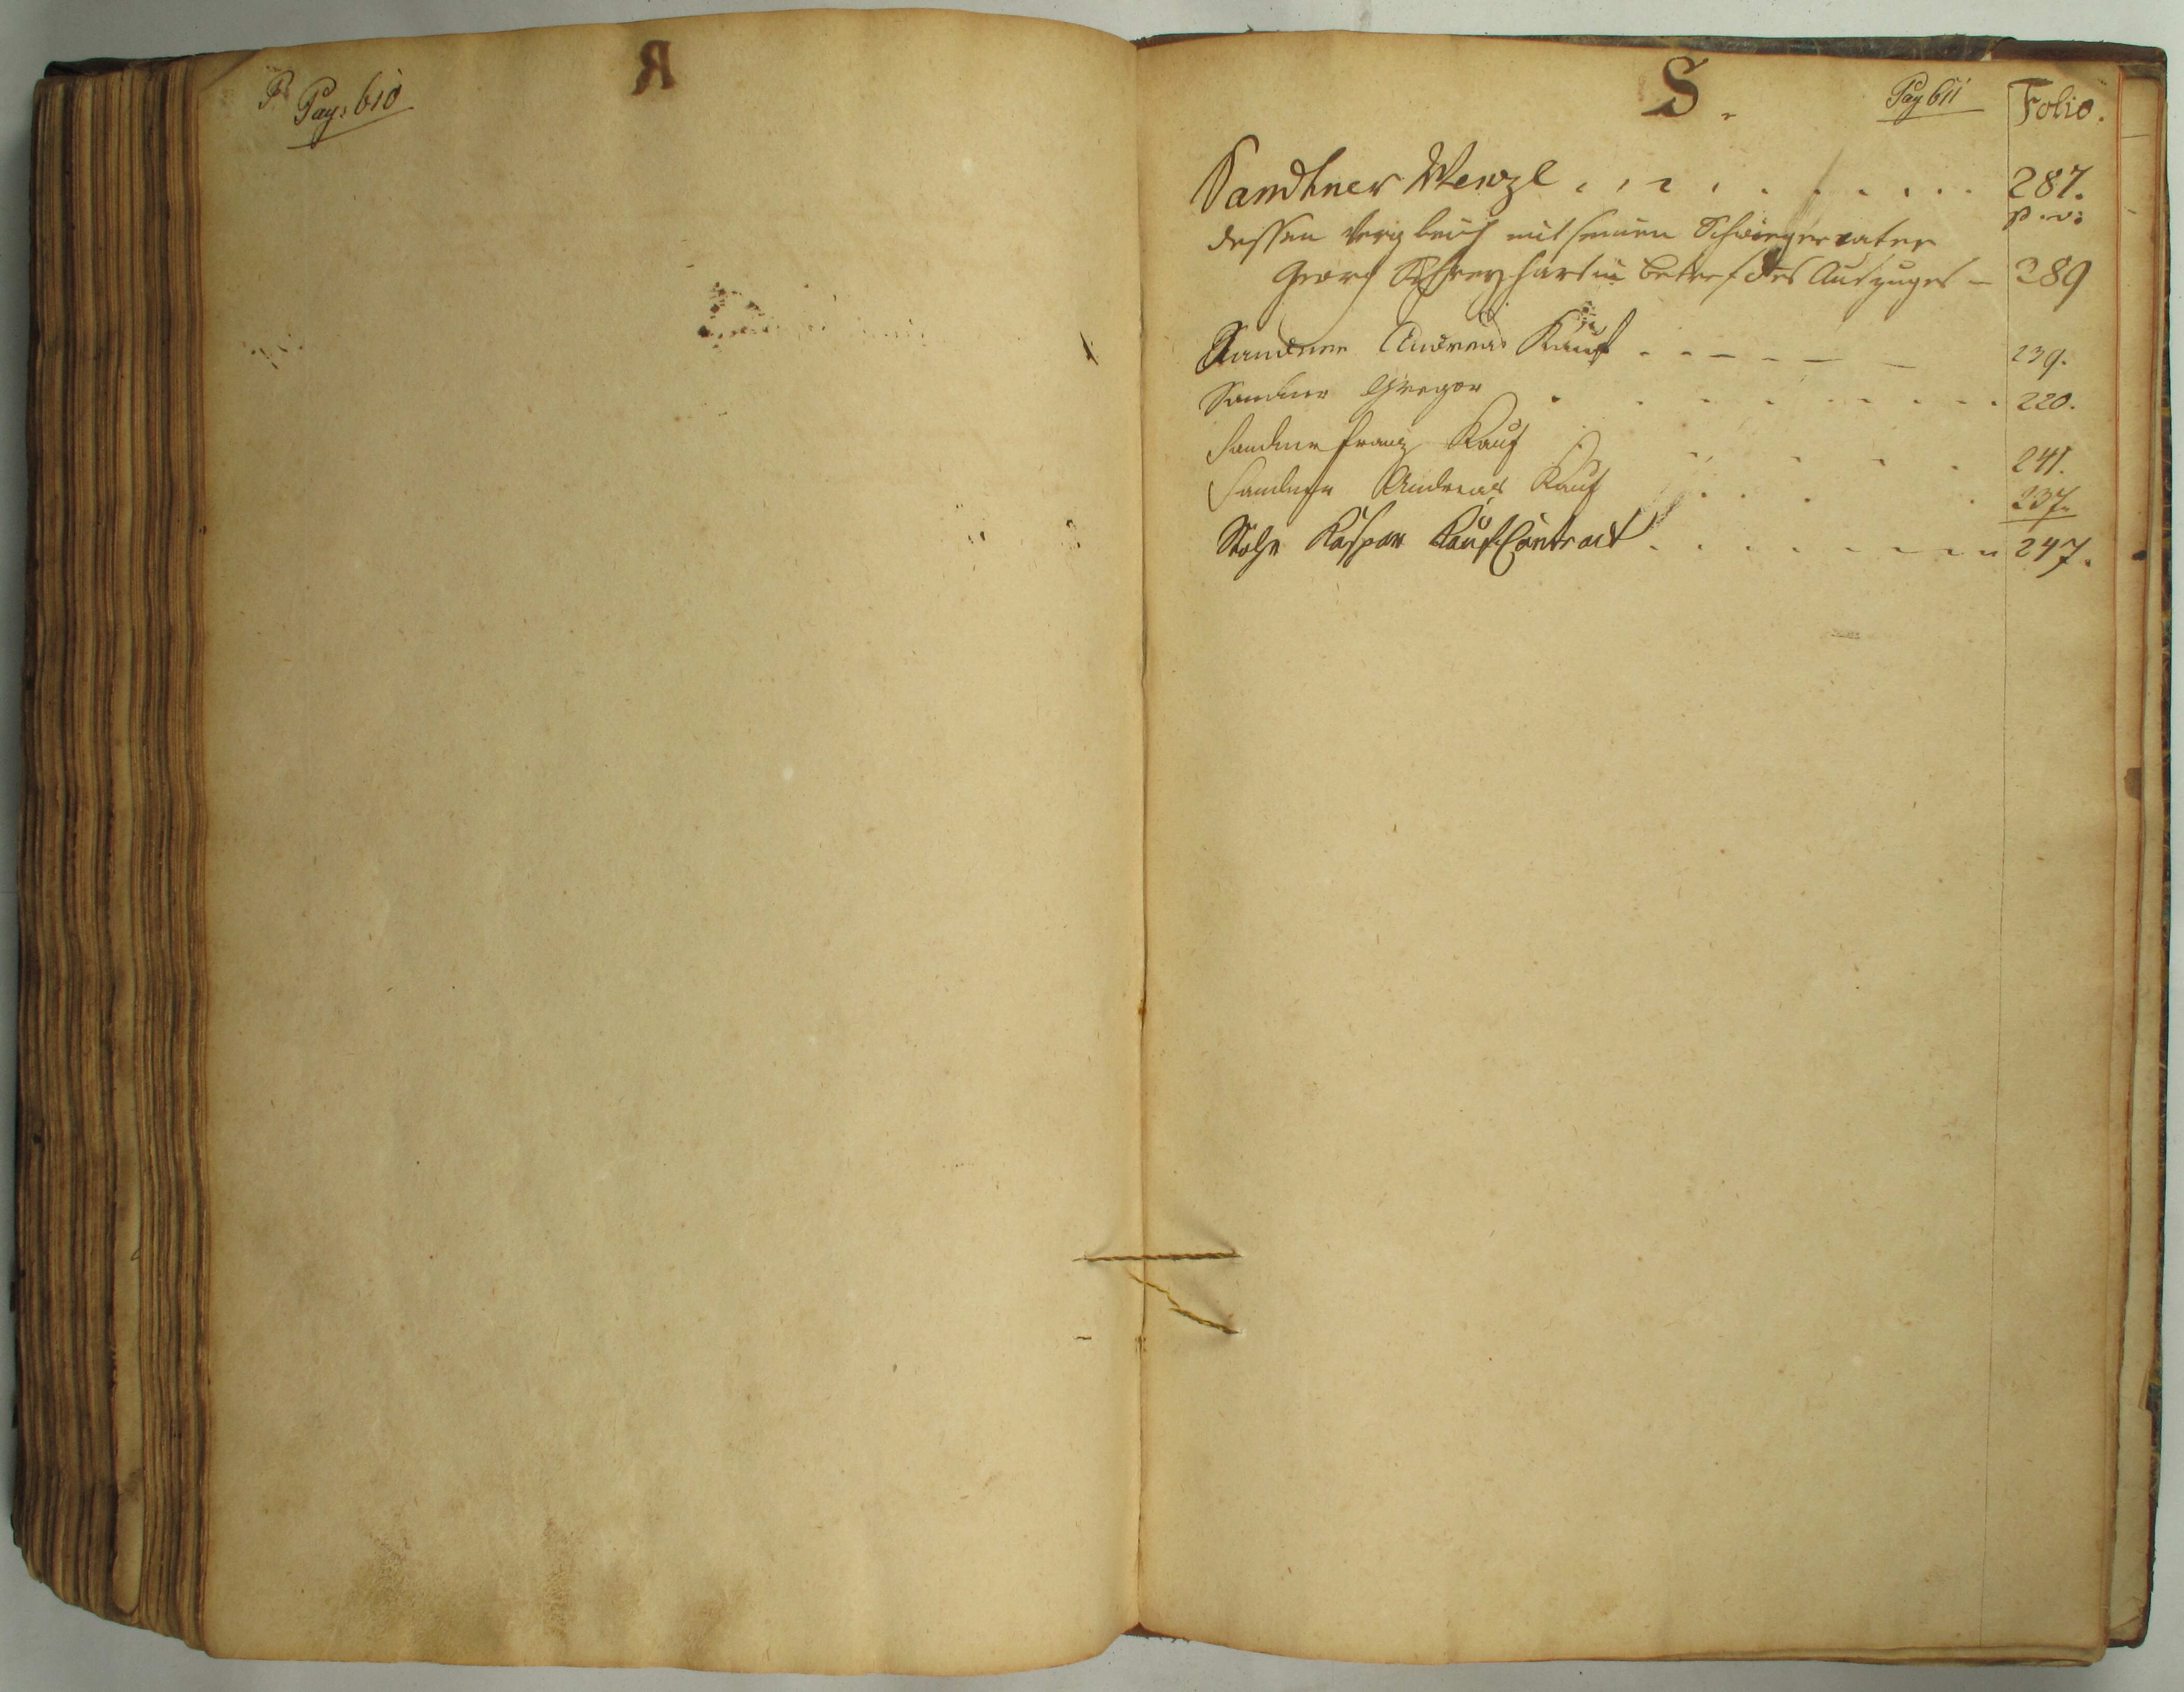 P
Pag: 610
R
S.
Pag 611
Folio.
Sandtner Wenzl . . . . . . . . . . 287.
p. v:
dessen Vergleich mit seinen Schwiegervater
Georg in betref des Auszuges - 289
Sandner Andreas Kauf - - - - - - 239.
Sandner Gregor . . . . . . . . . 220.
Sandner Franz Kauf . . . . . 241.
Sandner Andreas Kauf . . . . 237.
Kaspar Kauf Contract . . . . . . . . 247.